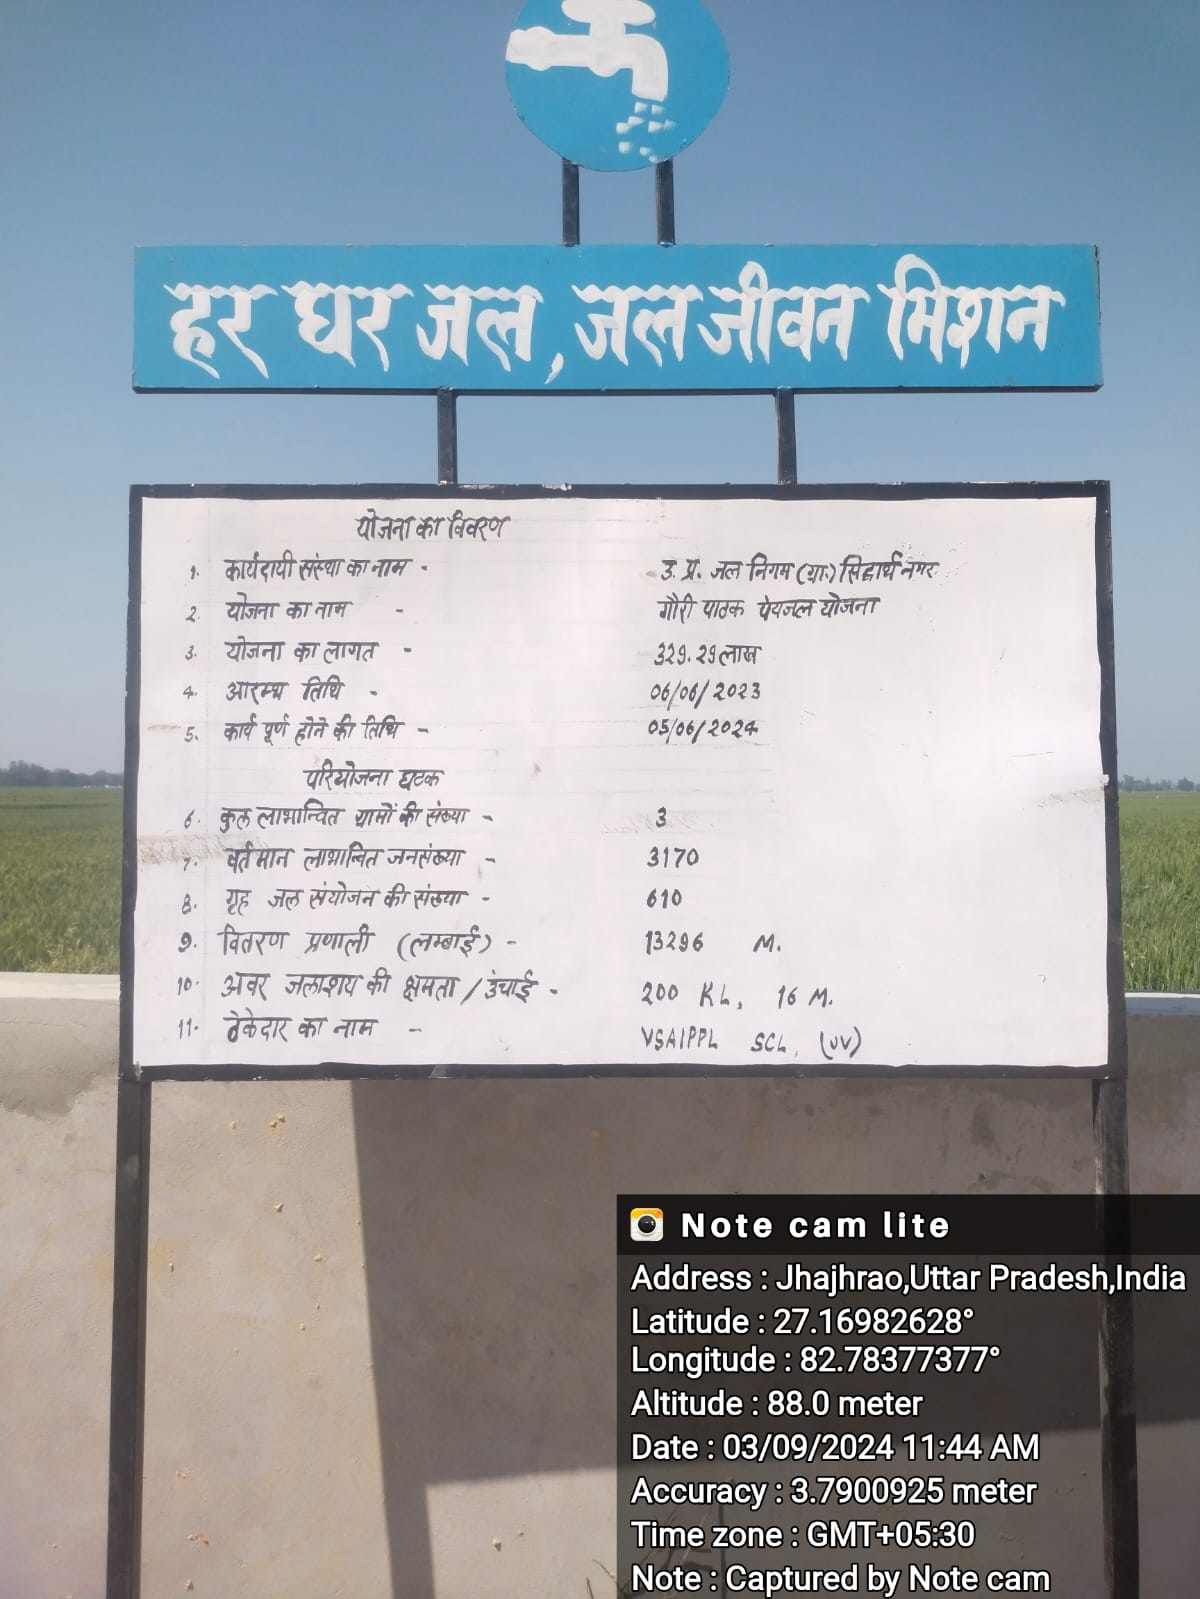 हर घर जल, जल जीवन मिशन
योजना का विवरण
1. कार्यदायी संस्था का नाम - उ. प्र. जल निगम (ग्रा.) सिद्धार्थ नगर
2. योजना का नाम - गौरी पाठक पेयजल योजना
3. योजना का लागत - 329.29 लाख
4. आरम्भ तिथि - 06/06/2023
5. कार्य पूर्ण होने की तिथि - 05/06/2024
परियोजना घटक
6. कुल लाभान्वित ग्रामों की संख्या - 3
7. वर्तमान लाभान्वित जनसंख्या - 3170
8. गृह जल संयोजन की संख्या - 610
9. वितरण प्रणाली (लम्बाई) - 13296 M.
10. अवर जलाशय की क्षमता / उंचाई - 200 KL, 16 M.
11. ठेकेदार का नाम - VSAIPPL SCL, (JV)
Note cam lite
Address : Jhajhrao,Uttar Pradesh,India
Latitude : 27.16982628°
Longitude : 82.78377377°
Altitude : 88.0 meter
Date : 03/09/2024 11:44 AM
Accuracy : 3.7900925 meter
Time zone : GMT+05:30
Note : Captured by Note cam